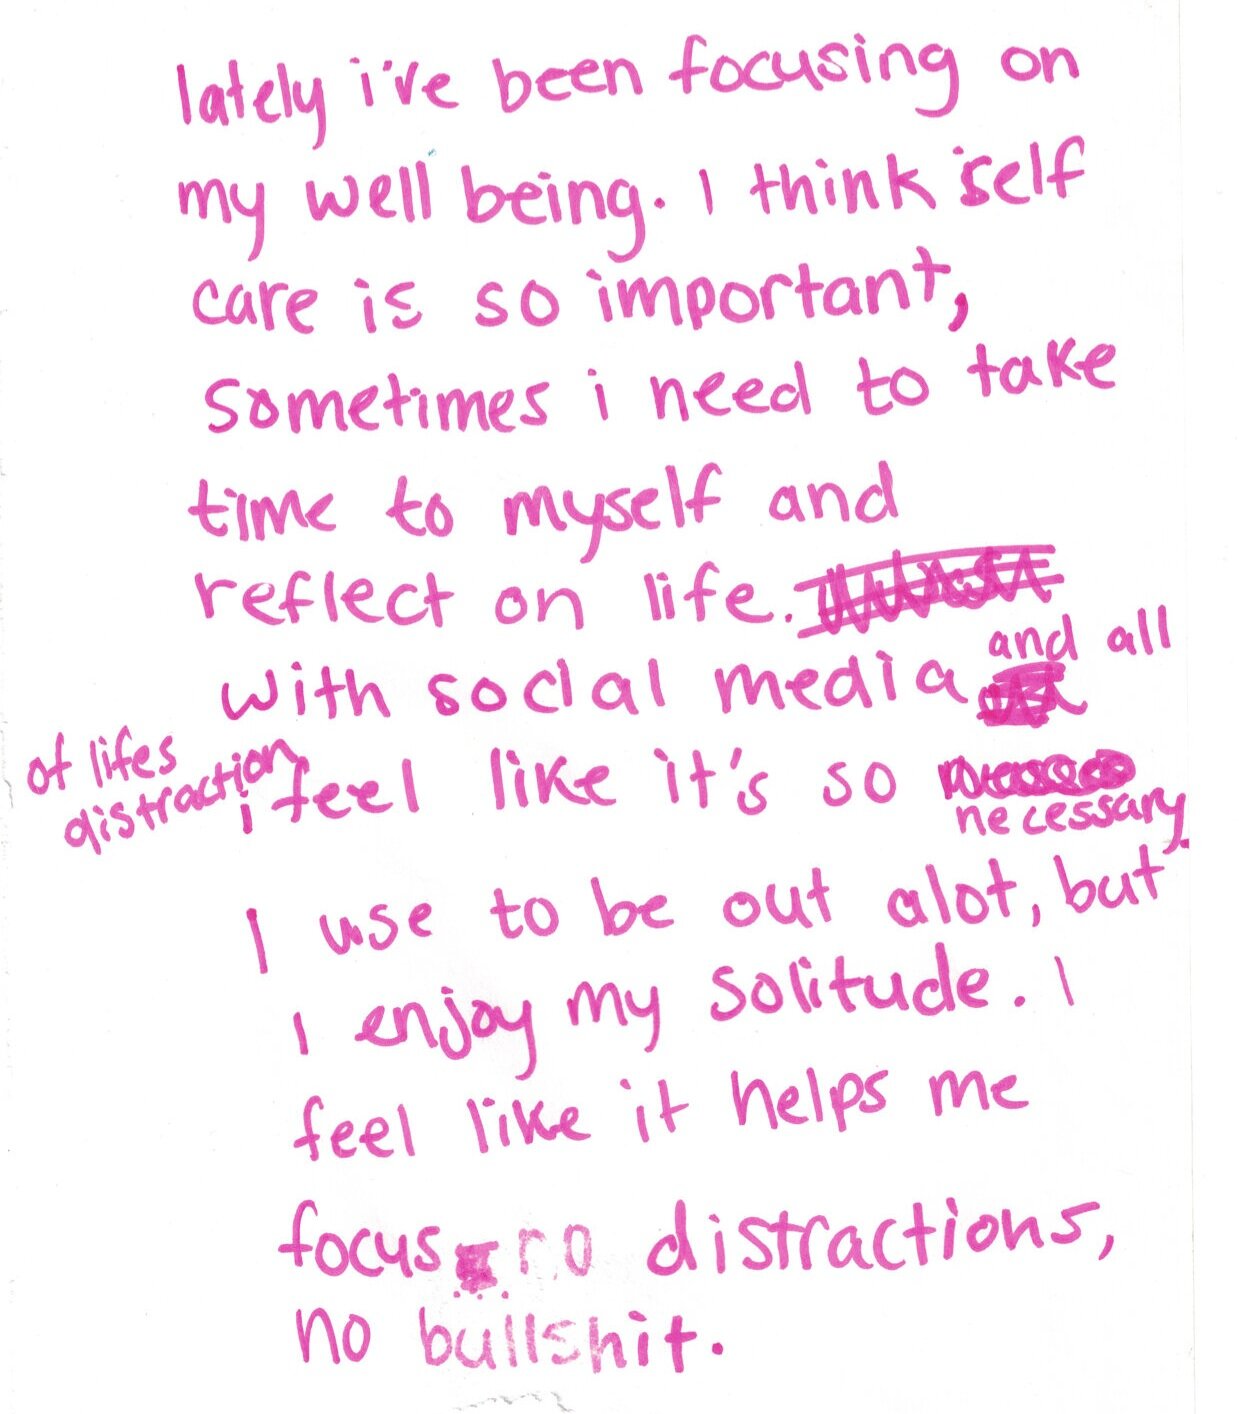 lately i've been focusing on
my well being. I think self
care is so important,
sometimes i need to take
time to myself and
reflect on life.
with social media and all
of lifes
distraction
i feel like it's so
necessary.
I use to be out alot, but
I enjoy my solitude. I
feel like it helps me
focus no distractions,
no bullshit.